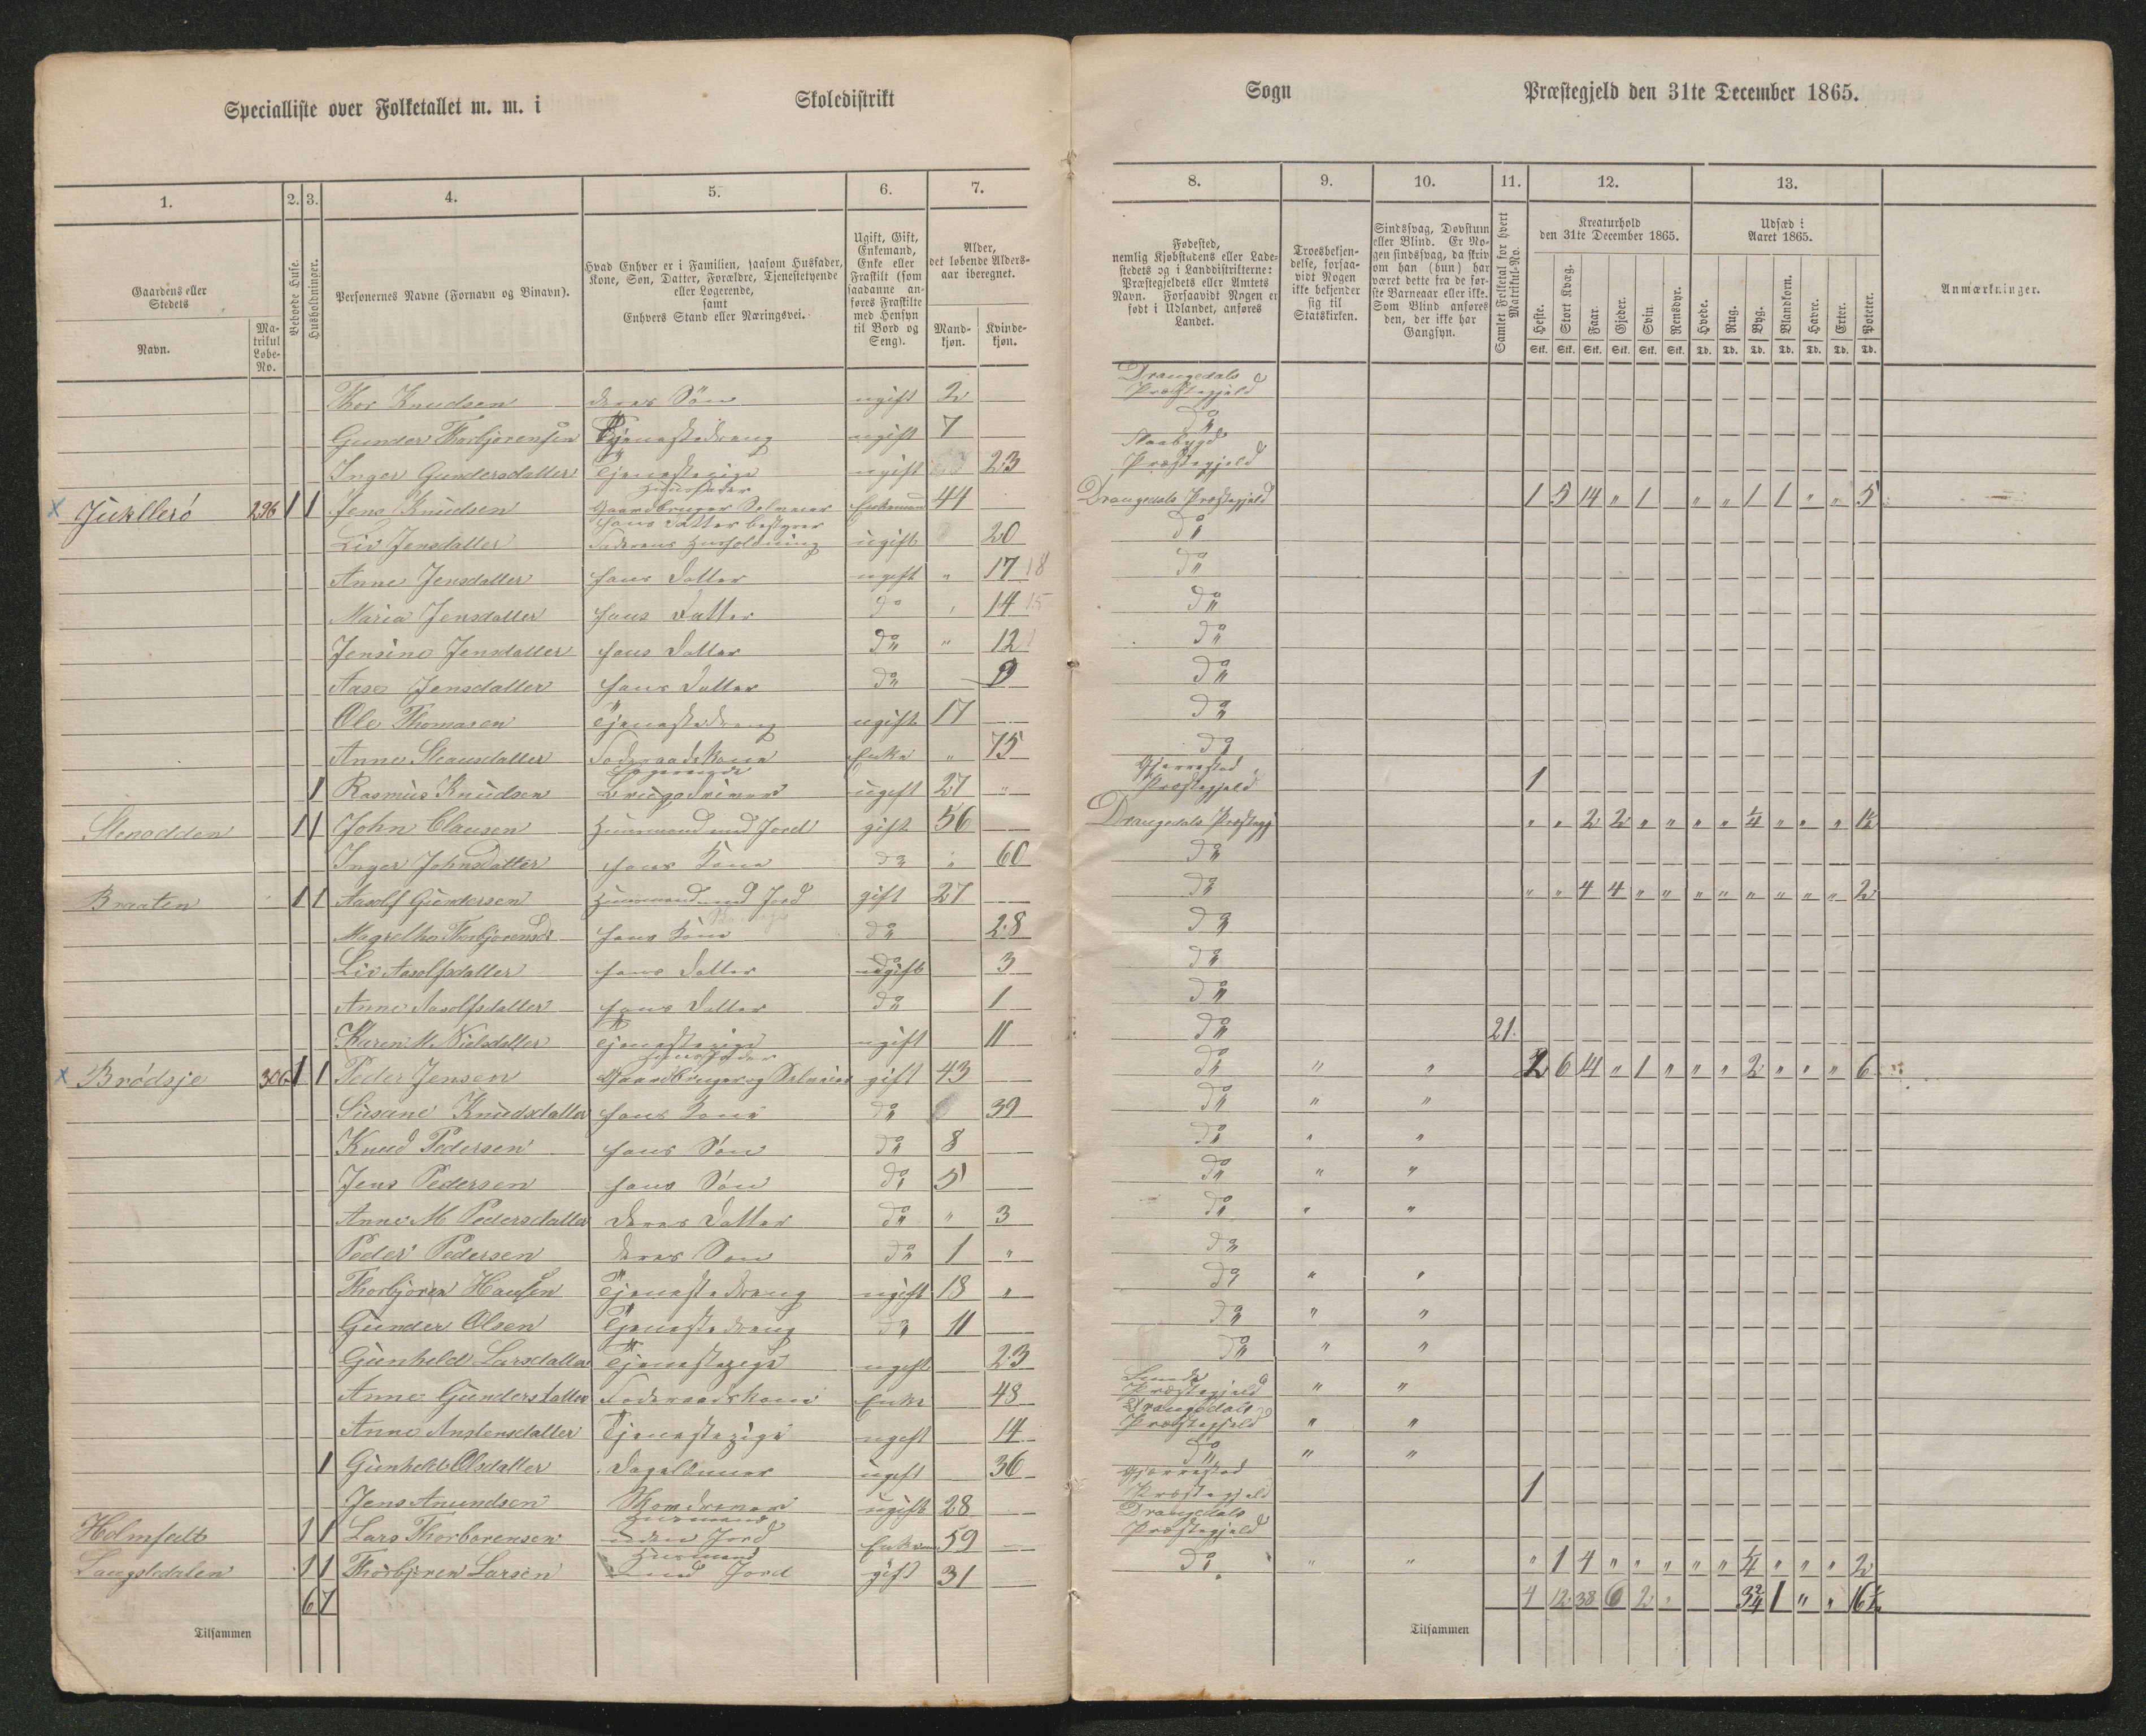 Specialliste over Folketallet m. m. i Skoledistrikt
Sogn Præstegjeld den 31te December 1865.
1. 2. 3. 4. 5. 6. 7. 8. 9. 10. 11. 12. 13.
Gaardens eller Stedets
Navn.
Matrikul Løbe-No.
Beboede Huse.
Husholdninger.
Personernes Navne (Fornavn og Binavn).
Hvad Enhver er i Familien, saasom Husfader,
Kone, Søn, Datter, Forældre, Tjenestetyende
eller Logerende,
samt
Enhvers Stand eller Næringsvei.
Ugift, Gift,
Enkemand,
Enke eller
Fraskilt (som
saadanne an-
føres Fraskilte
med Hensyn
til Bord og
Seng).
Alder,
det løbende Alders-
aar iberegnet.
Mand-
kjøn.
Kvinde-
kjøn.
Fødested,
nemlig Kjøbstadens eller Lade-
stedets og i Landdistrikterne:
Præstegjeldets eller Amtets
Navn. Forsaavidt Nogen er
født i Udlandet, anføres
Landet.
Troesbekjen-
delse, forsaa-
vidt Nogen
ikke bekjender
sig til
Statskirken.
Sindssvag, Døvstum
eller Blind. Er No-
gen sindssvag, da skriv
om han (hun) har
været dette fra de før-
ste Barneaar eller ikke.
Som Blind anføres
den, der ikke har
Gangsyn.
Samlet Folketal for hvert
Matrikul-No.
Kreaturhold
den 31te December 1865.
Heste. Stort Kvæg. Faar. Gjeder. Svin. Rensdyr.
Stk. Stk. Stk. Stk. Stk. Stk.
Udsæd i
Aaret 1865.
Hvede. Rug. Byg. Blandkorn. Havre. Erter. Poteter.
Td. Td. Td. Td. Td. Td. Td.
Anmærkninger.
Thor Knudsen deres Søn ugift 2 Drangedals Præstegjeld
Gunder Thorbjørensen Tjenestedreng ugift 7 do
Inger Gundersdatter Tjenestepige ugift 23 Præstegjeld
296 1 1 Jens Knudsen Huusfader Gaardbruger Selveier Enkemand 44 Drangedals Præstegjeld 1 5 14 " 1 " " 1 1 " " 5
Liv Jensdatter hans Datter bestyrer Faderens Husholdning ugift 20 do
Anne Jensdatter hans Datter ugift " 17 18 do
Maria Jensdatter hans Datter do " 14 15 do
Jensine Jensdatter hans Datter do " 12 do
Aase Jensdatter hans Datter do 9 do
Ole Thomasen Tjenestedreng ugift 17 do
Anne Steansdatter Foderaadskone Enke " 75 do
1 Rasmus Knudsen Logerende ugift 27 " Gjerrestad Præstegjeld 1
Stenodden 1 1 John Clausen Huusmand med Jord gift 56 Drangedals Præstegj " " 2 2 " " " " 1/4 " " " 1½
Inger Johnsdatter hans Kone do " 60 do
Braaten 1 1 Aasolf Gundersen Huusmand med Jord gift 27 do " " 4 4 " " " " " " " " 2
Magrethe Thorbjorensdr hans Kone do 28 do
Liv Aasolfsdatter hans Datter ugift 3 do
Anne Aasolfsdatter hans Datter do 1 do
Karen M. Nielsdatter Tjenestepige ugift 11 do 21.
Brødsje 306 1 1 Peder Jensen Huusfader Gaardbruger og Selveier gift 43 do " " 2 6 14 " 1 " " " 2 " " " 6
Susane Knudsdatter hans Kone do 39 do " "
Knud Pedersen hans Søn do 8 do " "
Jens Pedersen hans Søn do 5 do " "
Anne M Pedersdatter deres Datter do " 3 do " "
Peder Pedersen deres Søn do 1 " do
Thorbjøren Hansen Tjenestedreng ugift 18 " do " "
Gunder Olsen Tjenestedreng do 11 do " "
Gunheld Larsdatter Tjenestepige ugift 23 do " "
Anne Gundersdatter Foderaadskone Enke 48 Præstegjeld " "
Anne Anstensdatter Tjenestepige ugift 14 Drangedals Præstegjeld " "
1 Gunheld Olsdatter ugift 36 do " "
Jens Anundsen ugift 28 Gjerrestad Præstegjeld 1
Holmfalt 1 1 Lars Thorborensen Huusmand uden Jord Enkem 59 Drangedals Præstegjeld
Langsledalen 1 1 Thorbjøren Larsen Huusmand med Jord gift 31 do " " " 1 4 " " " " " 1/4 " " " 2
6 7 4 12 38 6 2 " 3 2/4 1 " " 16½
Tilsammen Tilsammen